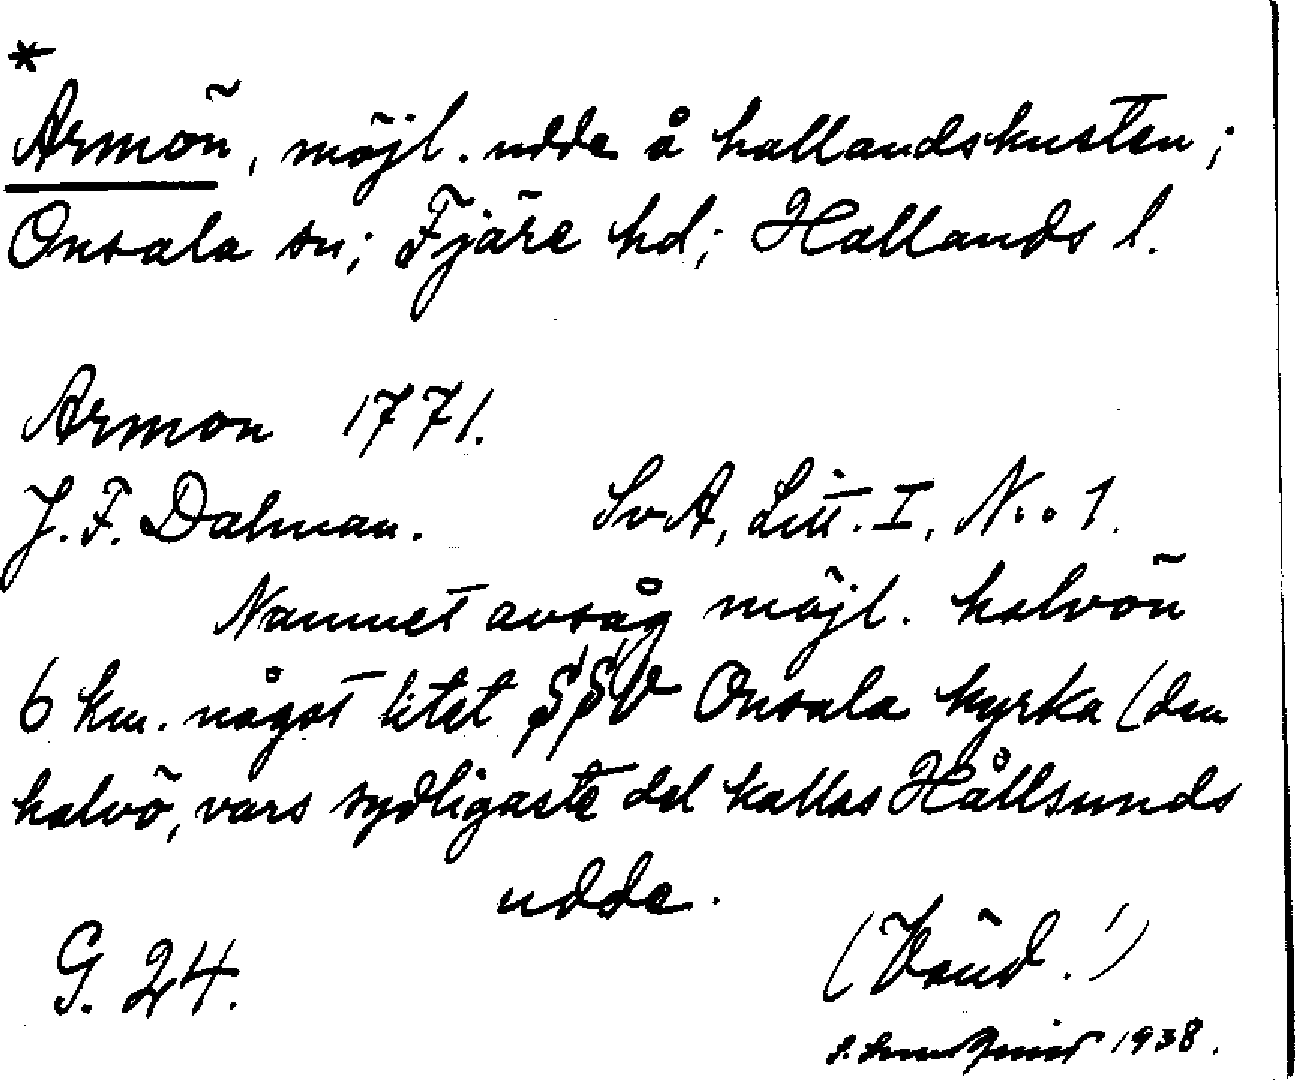 *
Armön, möjl. udde å hallandskusten;
Onsala sn; Fjäre hd; Hallands l.
Armon 1771.
J. F. Dalman. SvA, Litt. I, N:o 1.
Namnet avsåg möjl. halvön
6 km. något litet SSV Onsala kyrka (den
halvö, vars sydligaste del kallas Hållsunds
udde.
G. 24. (Vänd!)
1938.